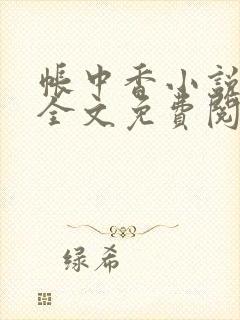 帳中香小說
全文免費閱
绿希